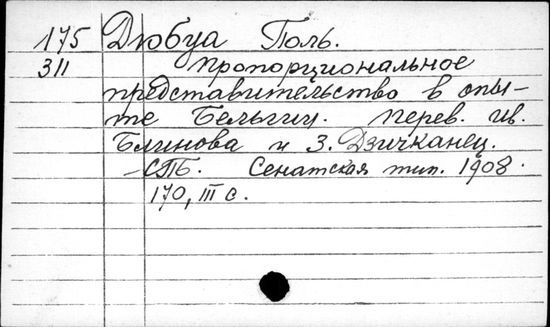 175 Дюбуа Поль.
311 Пропорциональное
представительство в опы-
те Бельгии. Перев. ив.
Блинова и З. Дзичканец.
-СПБ. Сенатская тип. 1908.
170, III с.